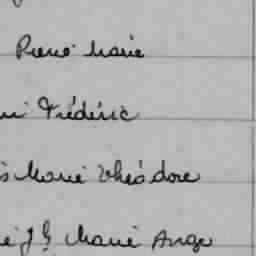 Pierre Marie
Frédéric
Marie Théodore
Jh Marie Ange